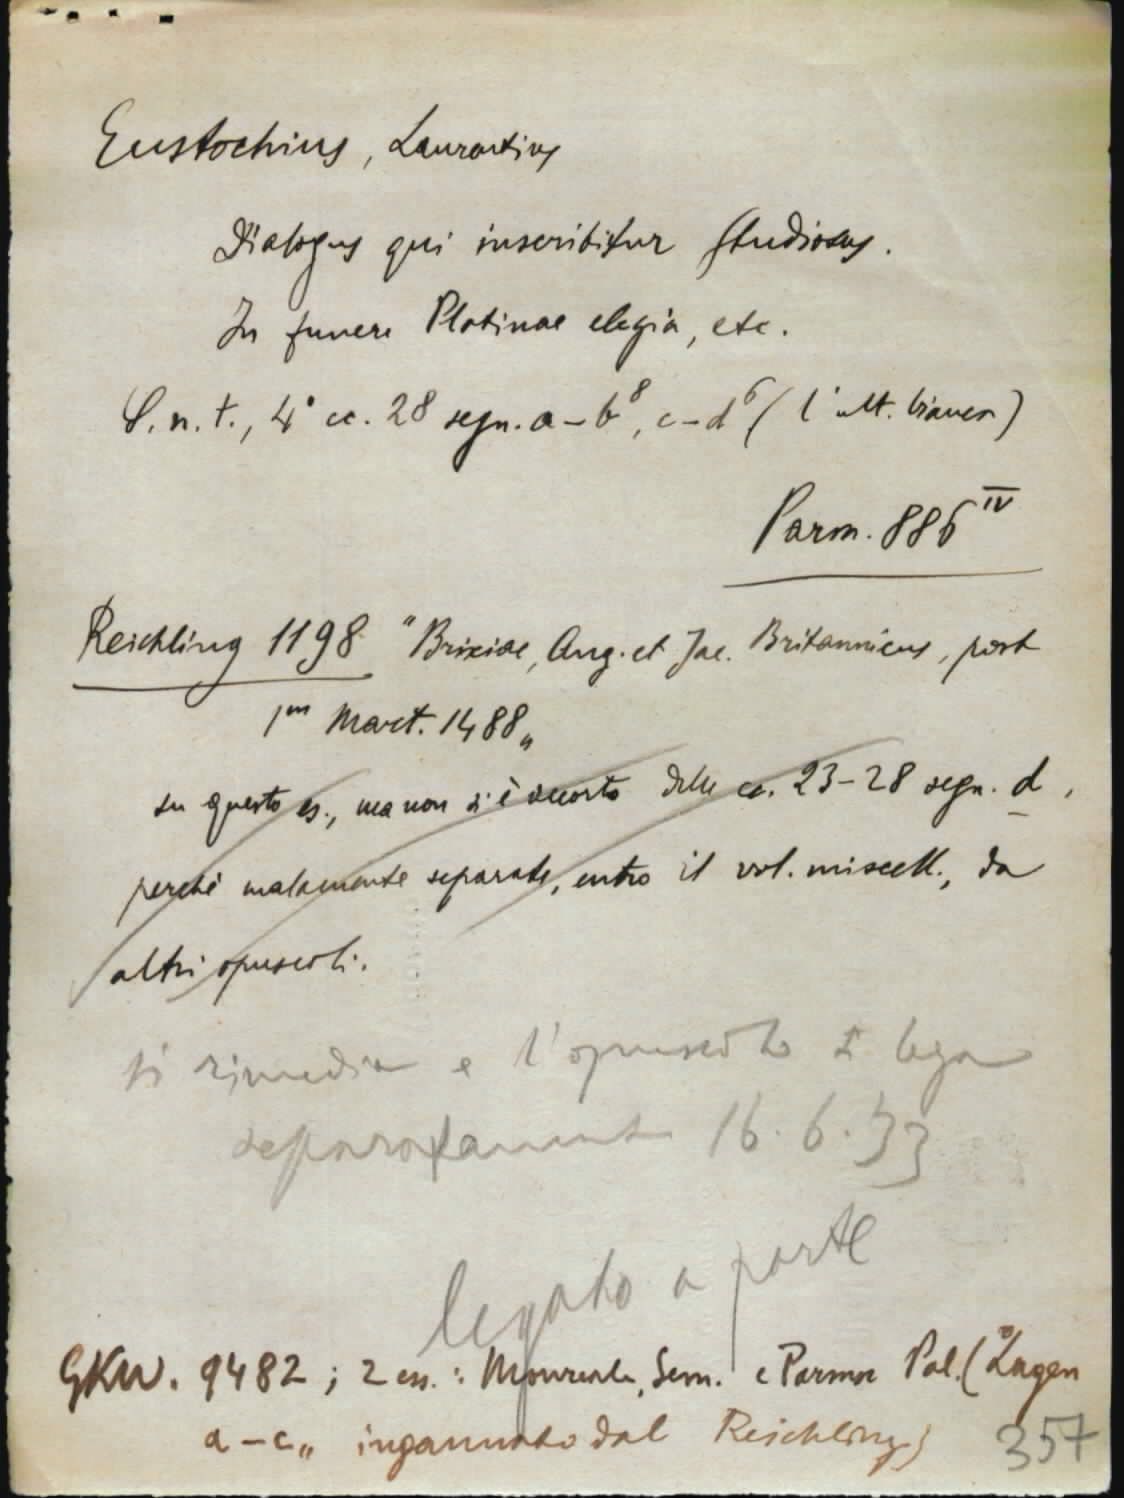 Eustochius, Laurentius
Dialogus qui inscribitur Studiosus.
In funere Platinae elegia, etc.
S. n. t., 4° cc. 28 segn. a-b⁸, c-d⁶ (l'ult. bianca)
Parm. 886 IV
Reichling 1198 "Brixiae, Ang. et Jac. Britannicus, post
1m Mart. 1488„
su questo es., ma non si è accorto delle cc. 23-28 segn. d,
perchè malamente separate, entro il vol. miscell., da
altri opuscoli.
si rimedia e l'opuscolo si lega
separatamente 16.6.33
legato a parte
GKW. 9482; 2 ess.: Monreale, Sem. e Parma Pal. ("Lagen
a-c„ ingannato dal Reichling)
357